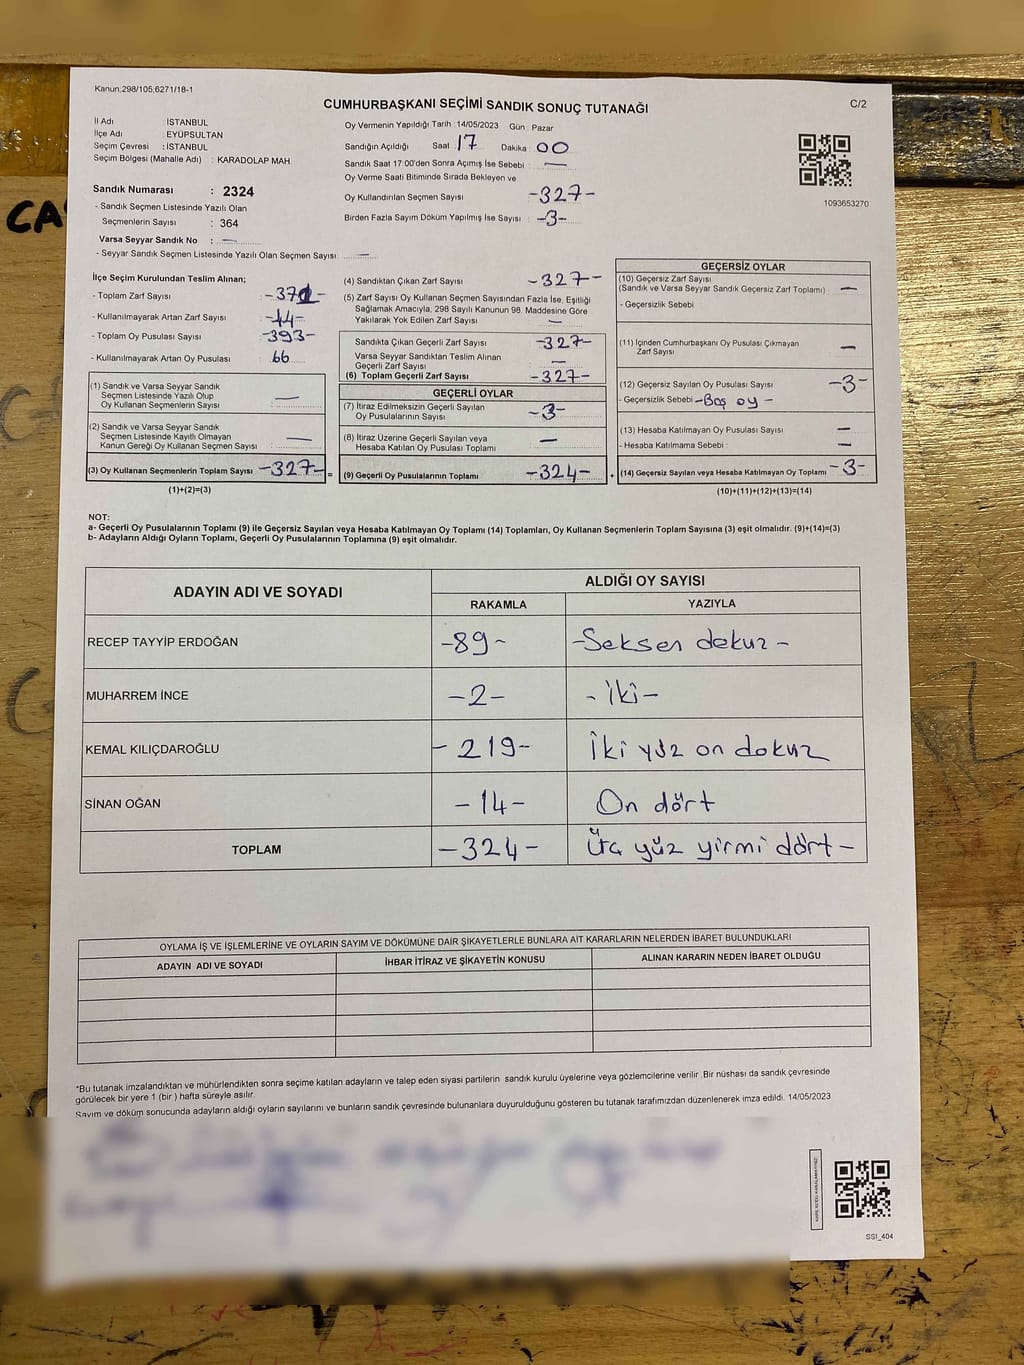 Kanun,298/105,6271/18-1
CUMHURBAŞKANI SEÇİMİ SANDIK SONUÇ TUTANAĞI
C/2
İl Adı : İSTANBUL
İlçe Adı : EYÜPSULTAN
Seçim Çevresi : İSTANBUL
Seçim Bölgesi (Mahalle Adı) : KARADOLAP MAH.
Oy Vermenin Yapıldığı Tarih : 14/05/2023 Gün : Pazar
Sandığın Açıldığı Saat 17 Dakika 00
Sandık Saat 17:00'den Sonra Açımış İse Sebebi : —
Oy Verme Saati Bitiminde Sırada Bekleyen ve
Oy Kullandırılan Seçmen Sayısı -327-
Birden Fazla Sayım Döküm Yapılmış İse Sayısı : -3-
1093653270
Sandık Numarası : 2324
- Sandık Seçmen Listesinde Yazılı Olan
Seçmenlerin Sayısı : 364
Varsa Seyyar Sandık No : —
- Seyyar Sandık Seçmen Listesinde Yazılı Olan Seçmen Sayısı : —
İlçe Seçim Kurulundan Teslim Alınan;
- Toplam Zarf Sayısı
- Kullanılmayarak Artan Zarf Sayısı -44-
- Toplam Oy Pusulası Sayısı -393-
- Kullanılmayarak Artan Oy Pusulası 66
(1) Sandık ve Varsa Seyyar Sandık
Seçmen Listesinde Yazılı Olup
Oy Kullanan Seçmenlerin Sayısı : —
(2) Sandık ve Varsa Seyyar Sandık
Seçmen Listesinde Kayıtlı Olmayan
Kanun Gereği Oy Kullanan Seçmen Sayısı : —
(3) Oy Kullanan Seçmenlerin Toplam Sayısı -327- =
(1)+(2)=(3)
(4) Sandıktan Çıkan Zarf Sayısı -327-
(5) Zarf Sayısı Oy Kullanan Seçmen Sayısından Fazla İse, Eşitliği
Sağlamak Amacıyla, 298 Sayılı Kanunun 98. Maddesine Göre
Yakılarak Yok Edilen Zarf Sayısı —
Sandıkta Çıkan Geçerli Zarf Sayısı -327-
Varsa Seyyar Sandıktan Teslim Alınan
Geçerli Zarf Sayısı —
(6) Toplam Geçerli Zarf Sayısı -327-
GEÇERLİ OYLAR
(7) İtiraz Edilmeksizin Geçerli Sayılan
Oy Pusulalarının Sayısı -3-
(8) İtiraz Üzerine Geçerli Sayılan veya
Hesaba Katılan Oy Pusulaları Toplamı —
(9) Geçerli Oy Pusulalarının Toplamı -324- +
GEÇERSİZ OYLAR
(10) Geçersiz Zarf Sayısı
(Sandık ve Varsa Seyyar Sandık Geçersiz Zarf Toplamı) : —
- Geçersizlik Sebebi
(11) İçinden Cumhurbaşkanı Oy Pusulası Çıkmayan
Zarf Sayısı —
(12) Geçersiz Sayılan Oy Pusulası Sayısı -3-
- Geçersizlik Sebebi -Boş oy -
(13) Hesaba Katılmayan Oy Pusulası Sayısı : —
- Hesaba Katılmama Sebebi : —
(14) Geçersiz Sayılan veya Hesaba Katılmayan Oy Toplamı -3-
(10)+(11)+(12)+(13)=(14)
NOT:
a- Geçerli Oy Pusulalarının Toplamı (9) ile Geçersiz Sayılan veya Hesaba Katılmayan Oy Toplamı (14) Toplamları, Oy Kullanan Seçmenlerin Toplam Sayısına (3) eşit olmalıdır. (9)+(14)=(3)
b- Adayların Aldığı Oyların Toplamı, Geçerli Oy Pusulalarının Toplamına (9) eşit olmalıdır.
ADAYIN ADI VE SOYADI ALDIĞI OY SAYISI
RAKAMLA YAZIYLA
RECEP TAYYİP ERDOĞAN -89- -Seksen dokuz -
MUHARREM İNCE -2- - iki-
KEMAL KILIÇDAROĞLU -219- İki yüz on dokuz
SİNAN OĞAN -14- On dört
TOPLAM -324- Üç yüz yirmi dört -
OYLAMA İŞ VE İŞLEMLERİNE VE OYLARIN SAYIM VE DÖKÜMÜNE DAİR ŞİKAYETLERLE BUNLARA AİT KARARLARIN NELERDEN İBARET BULUNDUKLARI
ADAYIN ADI VE SOYADI İHBAR İTİRAZ VE ŞİKAYETİN KONUSU ALINAN KARARIN NEDEN İBARET OLDUĞU
*Bu tutanak imzalandıktan ve mühürlendikten sonra seçime katılan adayların ve talep eden siyasi partilerin sandık kurulu üyelerine veya gözlemcilerine verilir .Bir nüshası da sandık çevresinde
görülecek bir yere 1 (bir ) hafta süreyle asılır.
Sayım ve döküm sonucunda adayların aldığı oyların sayılarını ve bunların sandık çevresinde bulunanlara duyurulduğunu gösteren bu tutanak tarafımızdan düzenlenerek imza edildi. 14/05/2023
SSI_404